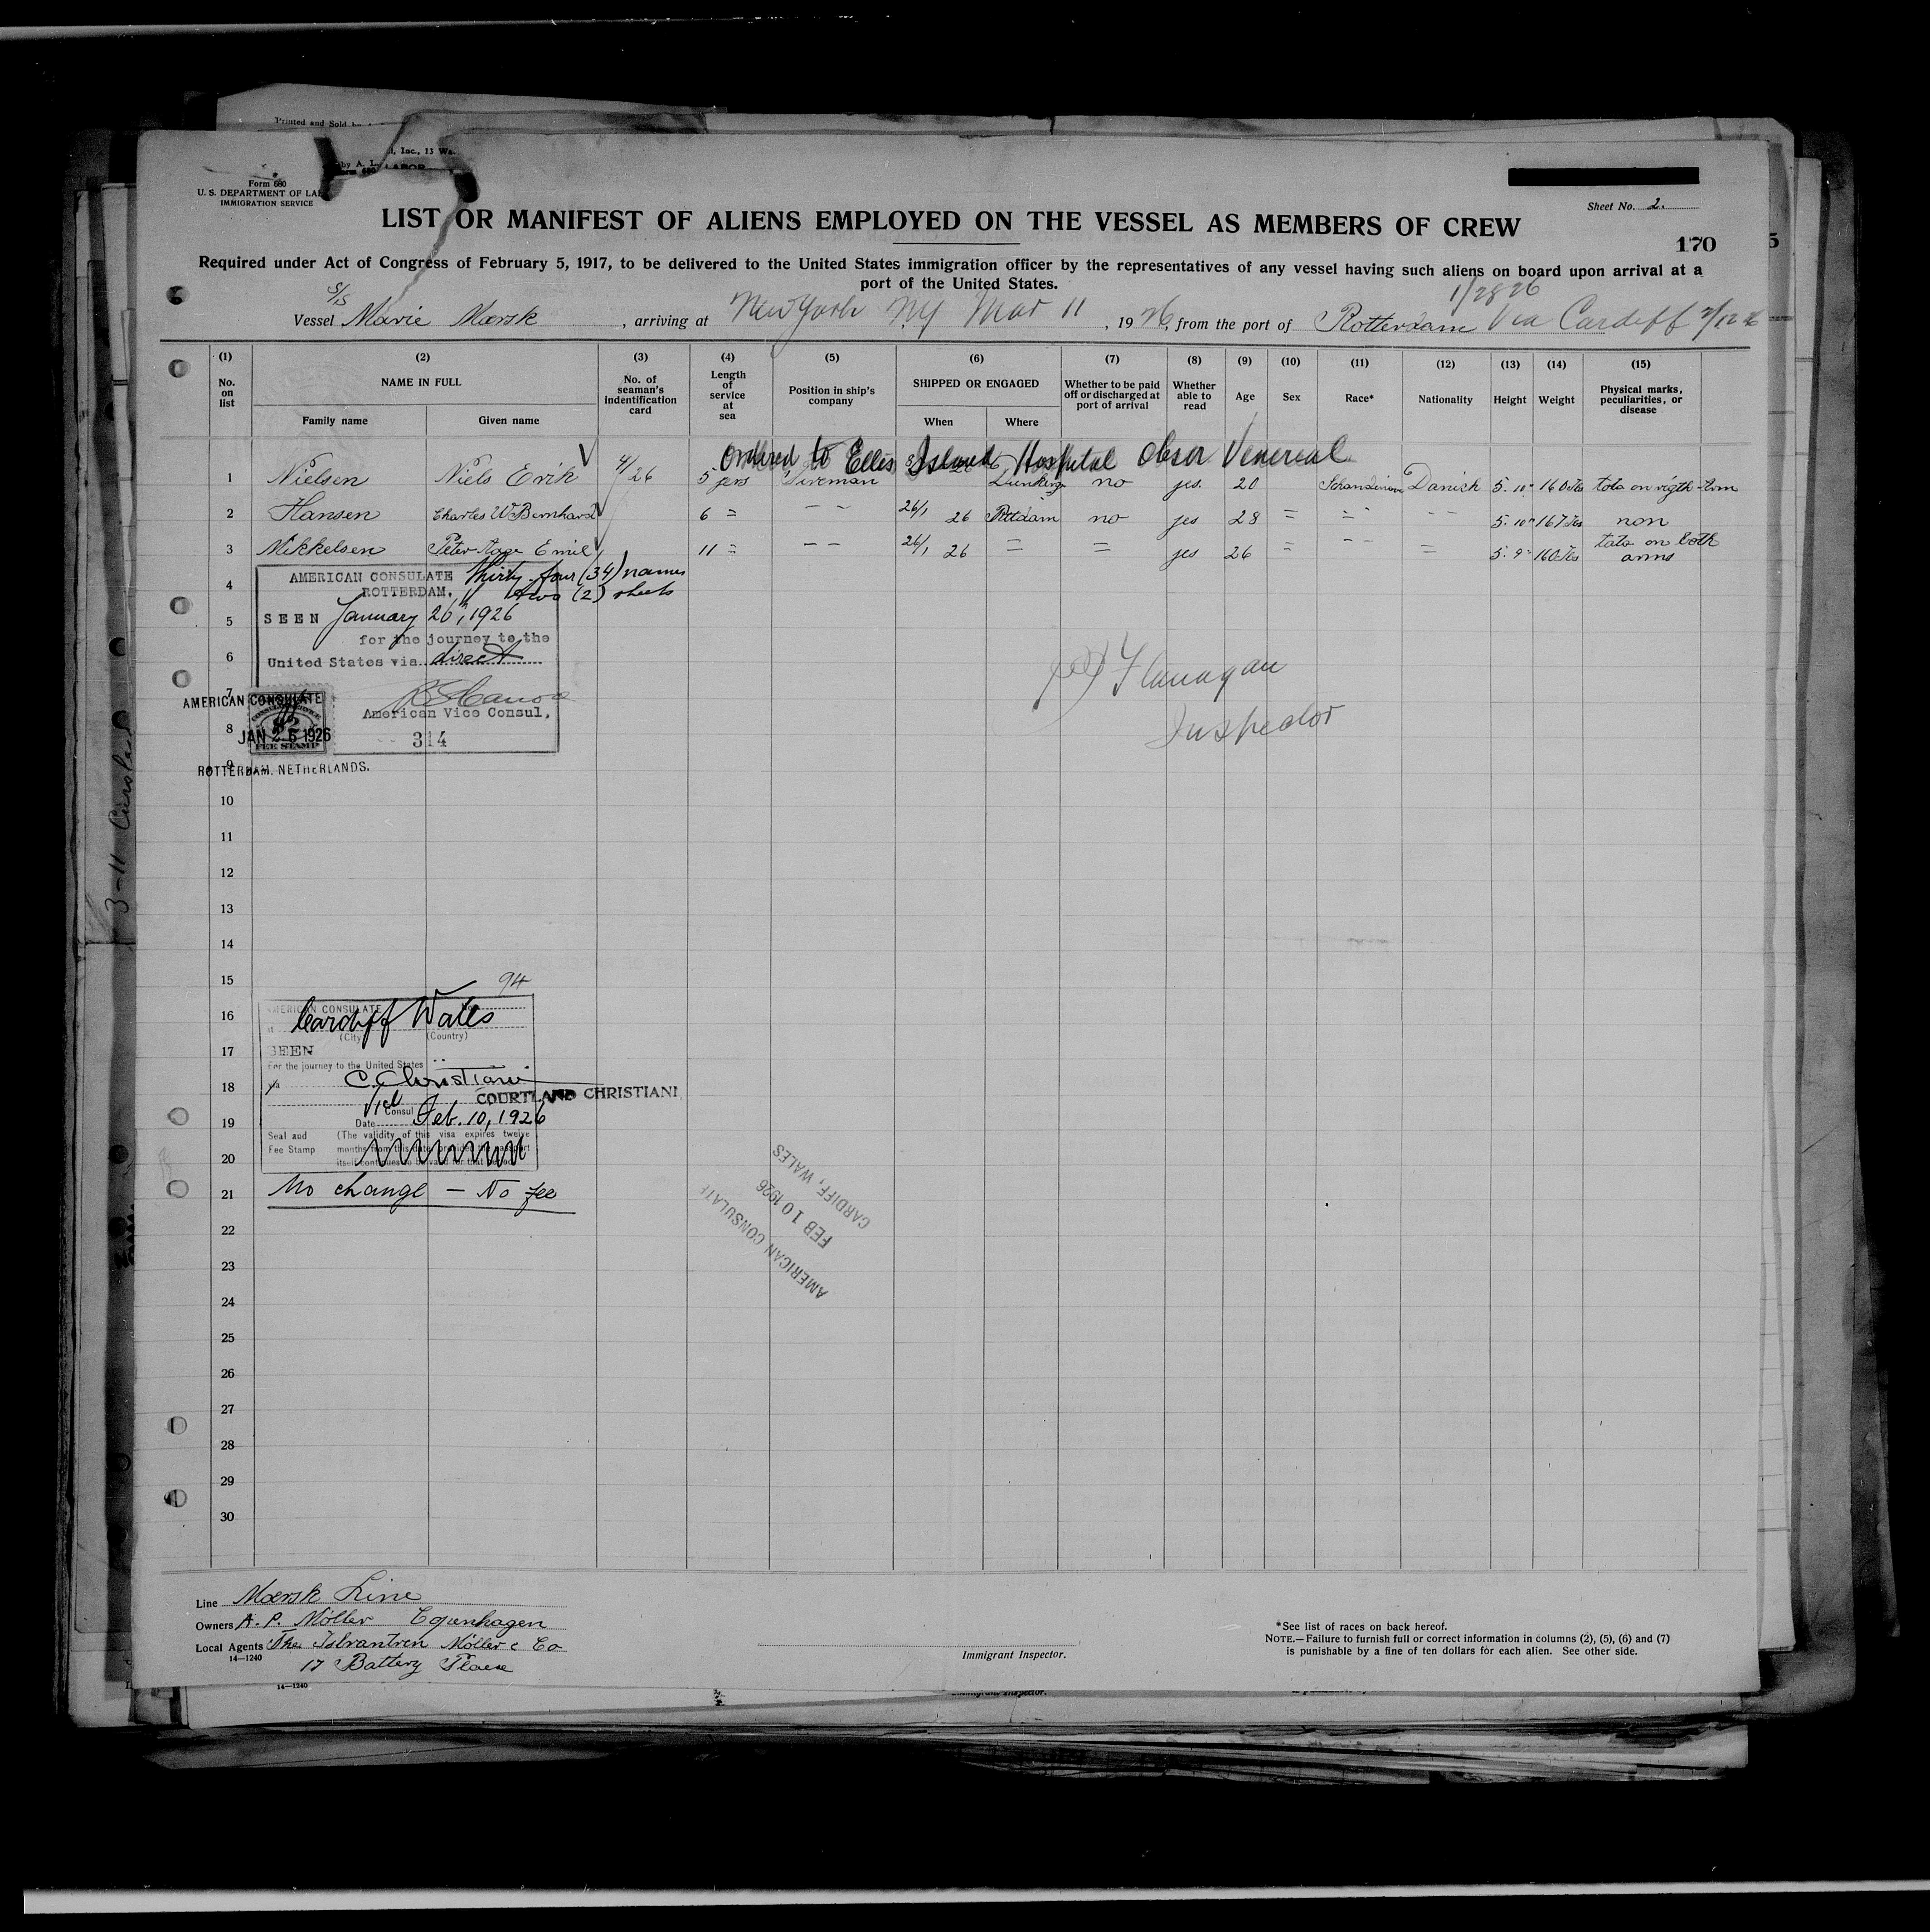 Printed and Sold by
, Inc., 13 Wa
by A. L.
LABOR
Form 680
U. S. DEPARTMENT OF LAB
IMMIGRATION SERVICE
Sheet No. 2.
LIST OR MANIFEST OF ALIENS EMPLOYED ON THE VESSEL AS MEMBERS OF CREW
170
5
Required under Act of Congress of February 5, 1917, to be delivered to the United States immigration officer by the representatives of any vessel having such aliens on board upon arrival at a
port of the United States.
S/S 1/28 26
Vessel Marie Mærsk, arriving at New York NY Mar 11, 1926, from the port of Rotterdam Via Cardiff 2/12 26
(1) (2) (3) (4) (5) (6) (7) (8) (9) (10) (11) (12) (13) (14) (15)
No. on list NAME IN FULL No. of seaman's indentification card Length of service at sea Position in ship's company SHIPPED OR ENGAGED Whether to be paid off or discharged at port of arrival Whether able to read Age Sex Race* Nationality Height Weight Physical marks, peculiarities, or disease
Family name Given name When Where
Ordered to Ellis Island Hospital Obser Venereal
1 Nielsen Niels Erik 4/26 5 yrs Fireman no yes. 20 Danish 5.10" 160 tots on rigth arm
2 Hansen Charles W Bernhard 6 = – – 26/1 26 Rttdam no yes 28 = =- - - 5.10" 167 non
3 Mikkelsen Peter Aage Emiel 11 = – – 26/1 26 = = yes 26 = - - = 5.9" 160 tats on both arms
4
5
6
7
8
9
10
11
12
13
14
15
16
17
18
19
20
21
22
23
24
25
26
27
28
29
30
AMERICAN CONSULATE Thirty-four (34) names
ROTTERDAM. two (2) sheets
SEEN January 26, 1926
for the journey to the
United States via direct
American Vice Consul,
314
AMERICAN CONSULATE
CONSULAR SERVICE
$2
FEE STAMP
JAN 26 1926
ROTTERDAM. NETHERLANDS.
Flanagan
Inspector
3-11
94
AMERICAN CONSULATE No.
Cardiff Wales
(City) (Country)
SEEN
For the journey to the United States
via
C. Christiani
COURTLAND CHRISTIANI
Vice Consul
Date Feb. 10, 1926
Seal and Fee Stamp
(The validity of this visa expires twelve
months from this date provided the passport
itself continues to be valid for that period)
No change — No fee
AMERICAN CONSULATE
FEB 10 1926
CARDIFF, WALES
Line Mærsk Line
Owners A. P. Möller Copenhagen
Local Agents The Isbrantsen Möller c Co
14—1240
17 Battery Place
Immigrant Inspector.
*See list of races on back hereof.
NOTE.—Failure to furnish full or correct information in columns (2), (5), (6) and (7)
is punishable by a fine of ten dollars for each alien. See other side.
14—1240
Immigrant Inspector.